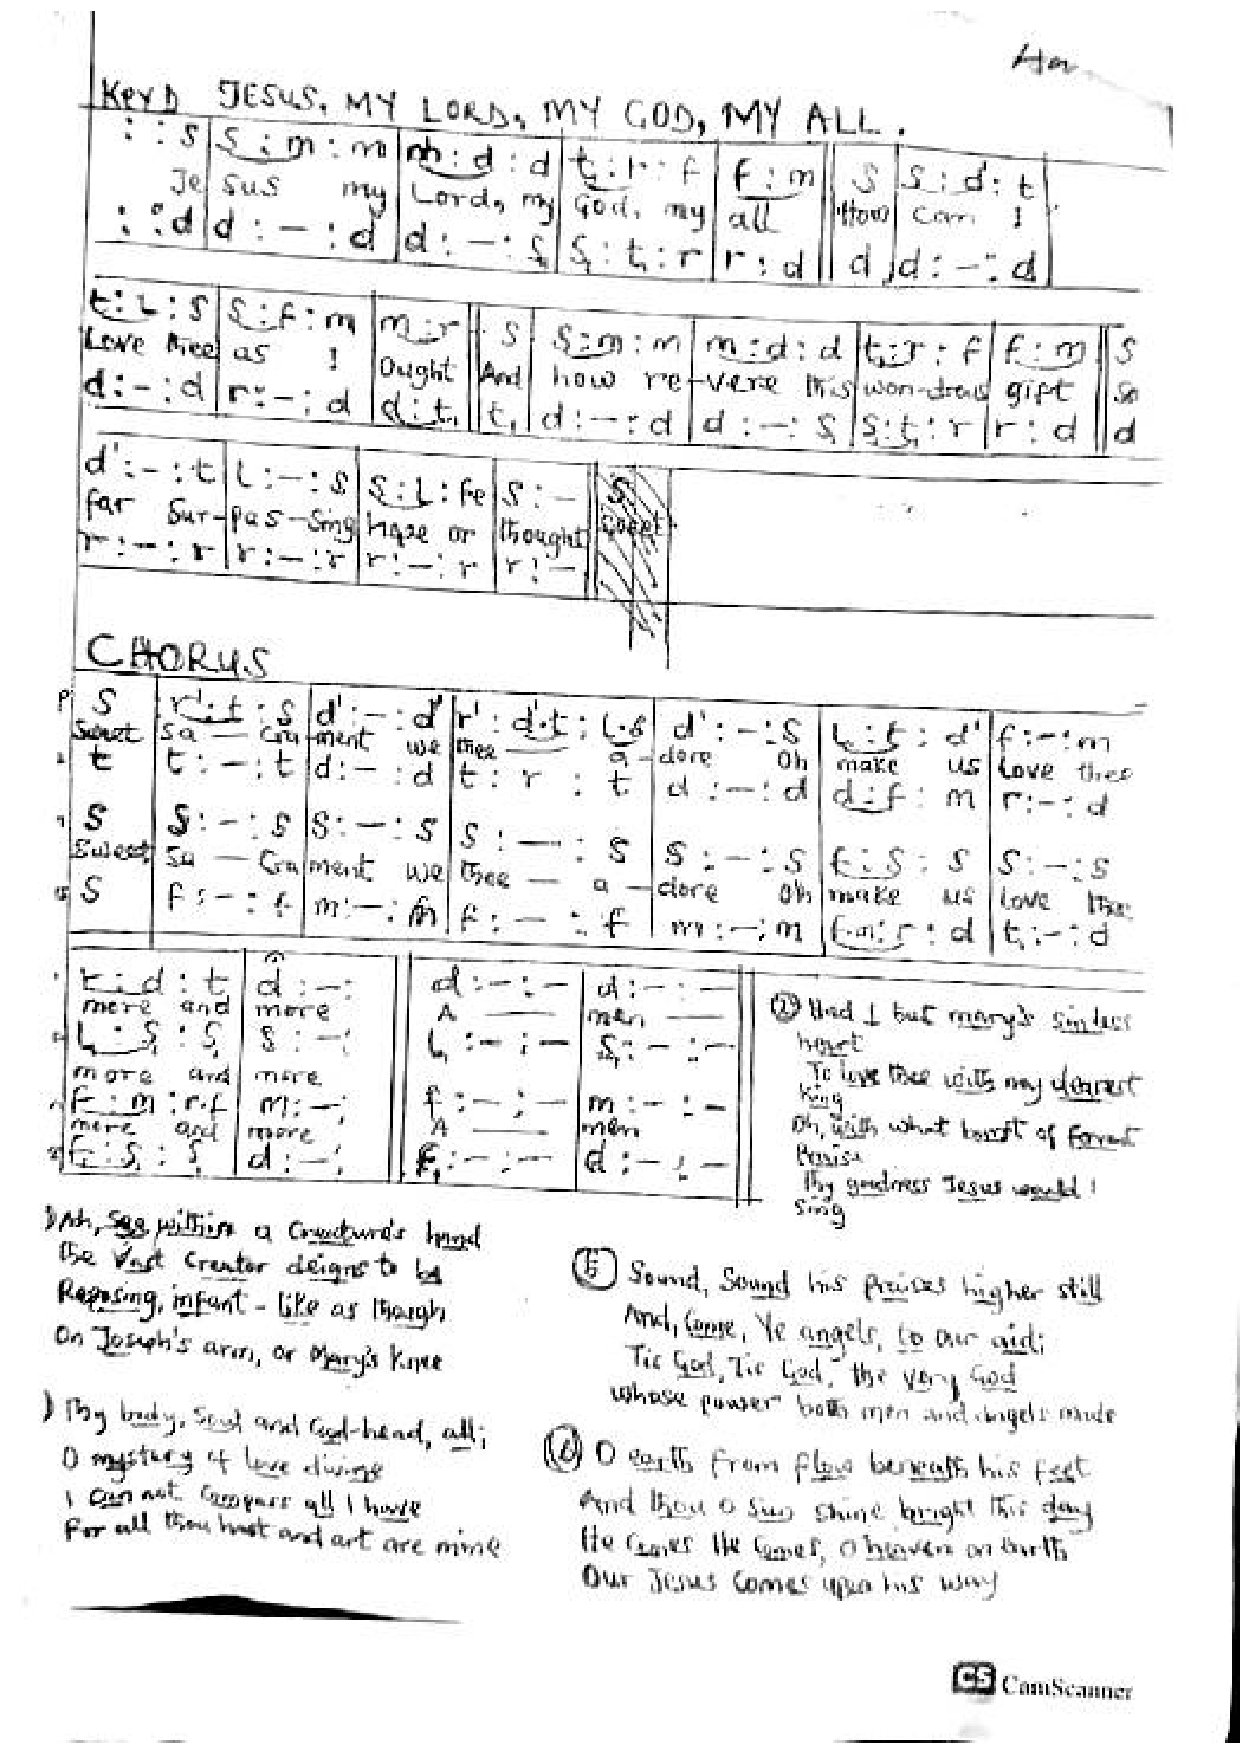 Key D JESUS, MY LORD, MY GOD, MY ALL.
: : s | s : m : m | m : d : d | t, : r : f | f : m || s | s : d' : t |
Je sus my Lord, my God, my all How can I
: : d | d : – : d | d : – : s, | s, : t, : r | r : d || d | d : – : d |
t : l : s | s : f : m | m : r || s | s : m : m | m : d : d | t, : r : f | f : m || s
Love thee as I Ought And how re-vere this won-drous gift So
d : – : d | r : – : d | d : t, || t, | d : – : d | d : – : s, | s, : t, : r | r : d || d
d' : – : t | l : – : s | s : l : fe | s : – ||
far Sur-pas-Sing hope or thought
r : – : r | r : – : r | r : – : r | r : –
CHORUS
s | r' : t : s | d' : – : d' | r' : d'.t : l.s | d' : – : s | l : t : d' | f : – : m
Sweet Sa – Cra-ment we thee – a-dore Oh make us Love thee
t | t : – : t | d : – : d | t : r : t | d : – : d | d : f : m | r : – : d
s | s : – : s | s : – : s | s : – : s | s : – : s | f : s : s | s : – : s
Sweet Sa – Cra ment we thee – a – dore Oh make us love thee
s | f : – : f | m : – : m | f : – : f | m : – : m | f.m : r : d | t, : – : d
t, : d : t | d : – : || d : – : – | d : – : –
more and more A men
l, : s, : s, | s : – : l, : – : – | s, : – : –
more and more
f : m : r.f | m : – : f : – : – | m : – : –
more and more A men
f, : s, : s, | d : – : f, : – : – | d : – : –
(2) Had I but mary's sinless
heart
To love thee with my dearest
King
Oh, with what burst of fervent
Praise
Thy goodness Jesus would I
sing
) Ah, see within a Creature's hand
the Vast Creator deigns to be
Reposing, infant-like as though
On Joseph's arm, or Mary's Knee
) Thy body, Soul and God-head, all;
O mystery of love divine
I can not Compass all I have
For all thou hast and art are mine
(5) Sound, Sound his praises higher still
And, Come, Ye angels, to our aid;
Tis God, Tis God, the very God
whose power both men and angels made
(6) O earth from flow beneath his feet
And thou O Sun shine bright this day
He Comes He Comes, O heaven on earth
Our Jesus Comes upon his way
CS CamScanner